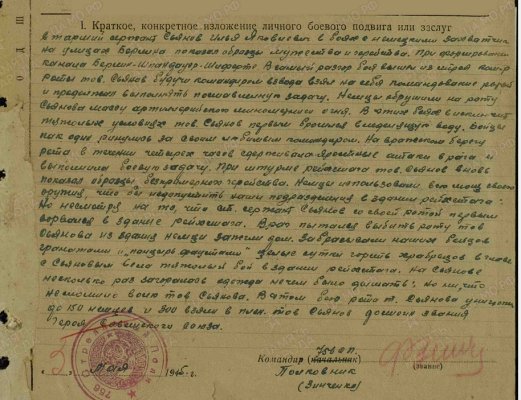 I. Краткое, конкретное изложение личного боевого подвига или заслуг
Старший сержант Сьянов Илья Яковлевич в боях с немецкими захватчик
на улицах Берлина показал образцы мужества и геройства. При форсировании
канала Берлин-Шпандауер-Шифартс в самый разгар боя вышел из строя коман-р
роты тов. Сьянов будучи командиром взвода взял на себя командование ротой
и продолжал выполнять поставленную задачу. Немцы обрушили на роту
Сьянова массу артиллерийского минометного огня. В этих боях в исключит
тяжелых условиях тов. Сьянов первым бросился в ледяную воду. Бойцы
как один ринулись за своим любимым командиром. На вражеском берегу
рота в течении четырех часов сдерживала яростные атаки врага и
выполнила боевую задачу. При штурме рейхстага тов. Сьянов вновь
показал образцы безпримерного геройства. Немцы использовали всю мощь своего
оружия, что бы недопустить наши подразделения в здании рейхстага:
Но несмотря на то, что ст. сержант Сьянов со своей ротой первым
ворвался в здание рейхстага. Враг пытался выбить роту тов
Сьянова из здания немцы зажгли дом. Забрасывали наших бойцов
гранатами и „панцырь фаустами" целые сутки горсть храбрецов в главе
с Сьяновым вела тяжелый бой в здании рейхстага. На Сьянове
несколько раз загоралась одежда нечем было дышать. Но ни что
несломило воли тов Сьянова. В этом бою рота т. Сьянова уничтожи
до 150 немцев и 300 взяли в плен. тов Сьянов достоин звания
Героя Советского Союза.
Командир (начальник) 756 СП
3 Мая 1945 г.
Полковник
(звание)
(Зинченко)